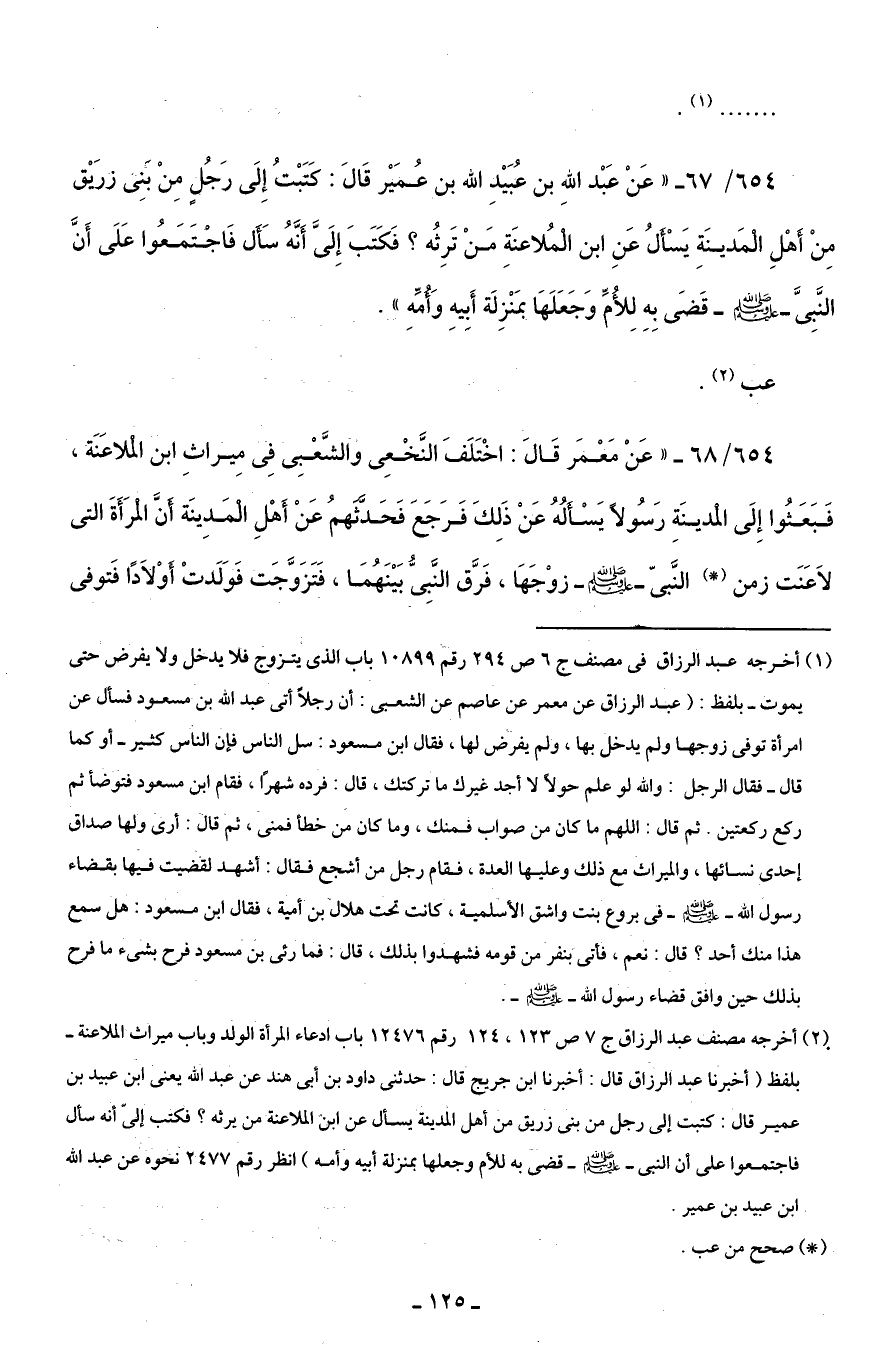 ....... (١) .
٦٥٤/ ٦٧ـ « عَنْ عَبْد الله بن عُبَيْدِ الله بن عُـمَيْر قَالَ : كَتَبْتُ إِلَى رَجُلٍ مِنْ بَنِى زريَق
مِنْ أَهْلِ الْمَدِيـنَةِ يَسْأَلُ عَنِ ابن الْمُلاعنَة مَـنْ تَرِثُه ؟ فَكَتَبَ إِلَىَّ أَنَّهُ سَأَل فَاجْـتَمَـعُوا عَلَى أَنَّ
النَّبِىَّ ـ ﷺ ـ قَضَى بِهِ لِلأُمِّ وَجَعَلَهَا بمَنْزِلَة أَبِيهِ وَأُمِّهِ » .
عب (٢) .
٦٥٤ /٦٨ ـ « عَنْ مَعْـمَر قَـالَ : اخْتَلَفَ النَّخْـعِى والشَّعْـبِى فِى مِيـرَاثِ ابن الْمُلاعَنَة ،
فَـبَعَـثُوا إِلَى الْمدِينَةِ رَسُولاً يَسْـأَلُهُ عَنْ ذَلِكَ فَـرجَعَ فَحَـدَّثَهم عَنْ أَهْلِ الْمَـدِينَة أَنَّ الْمرَأَةَ التى
لاَعَنَت زمن (*) النَّبِىّ ـ ﷺ ـ زوْجَهَا ، فَرَّق النَّبِىُّ بَيْنَهُمَـا ، فَتَزَوَّجَت فَوَلَدتْ أَوْلاَدًا فَتوفى
(١) أخـرجه عـبد الرزاق فى مصنف ج ٦ ص ٢٩٤ رقم ١٠٨٩٩ باب الذى يتـزوج فلا يدخل ولا يفرض حتى
يموت ـ بلفظ : ( عبـد الرزاق عن معمر عن عاصم عن الشعـبى : أن رجلاً أتى عبد الله بن مسعـود فسأل عن
امرأة توفى زوجهـا ولم يدخل بها ، ولم يفرض لها ، فقال ابن مـسعود : سل الناس فإن الناس كثـير ـ أو كما
قال ـ فقال الرجل : والله لو علم حولاً لا أجد غيرك ما تركتك ، قال : فرده شهرًا ، فقام ابن مسعود فتوضأ ثم
ركع ركعتين . ثم قال : اللهم ما كان من صواب فـمنك ، وما كان من خطأ فمنى ، ثم قال : أرى ولها صداق
إحدى نسـائها ، والميراث مع ذلك وعليـها العدة ، فـقام رجل من أشجع فـقال : أشهـد لقضيت فـيها بقـضاء
رسول الله ـ ﷺ ـ فى بروع بنت واشق الأسلميـة ، كانت تحت هلال بن أمية ، فقال ابن مـسعود : هل سمع
هذا منك أحد ؟ قال : نعم ، فأتى بنفر من قومه فشهـدوا بذلك ، قال : فما رئى بن مسعود فرح بشىء ما فرح
بذلك حين وافق قضاء رسول الله ـ ﷺ ـ .
(٢) أخرجه مصنف عبد الرزاق ج ٧ ص ١٢٣ ، ١٢٤ رقم ١٢٤٧٦ باب ادعاء المرأة الولد وباب ميراث الملاعنة ـ
بلفظ ( أخبرنا عبد الرزاق قال : أخبرنا ابن جريج قال : حدثنى داود بن أبى هند عن عبد الله يعنى ابن عبيد بن
عميـر قال : كتبت إلى رجل من بنى زريق من أهل المدينة يسـأل عن ابن الملاعنة من يرثه ؟ فكتب إلىّ أنه سأل
فاجتمعوا على أن النبى ـ ﷺ ـ قضى به للأم وجعلها بمنزلة أبيه وأمـه ) انظر رقم ٢٤٧٧ نحوه عن عبد الله
ابن عبيد بن عمير .
(*) صحح من عب .
ـ ١٢٥ ـ